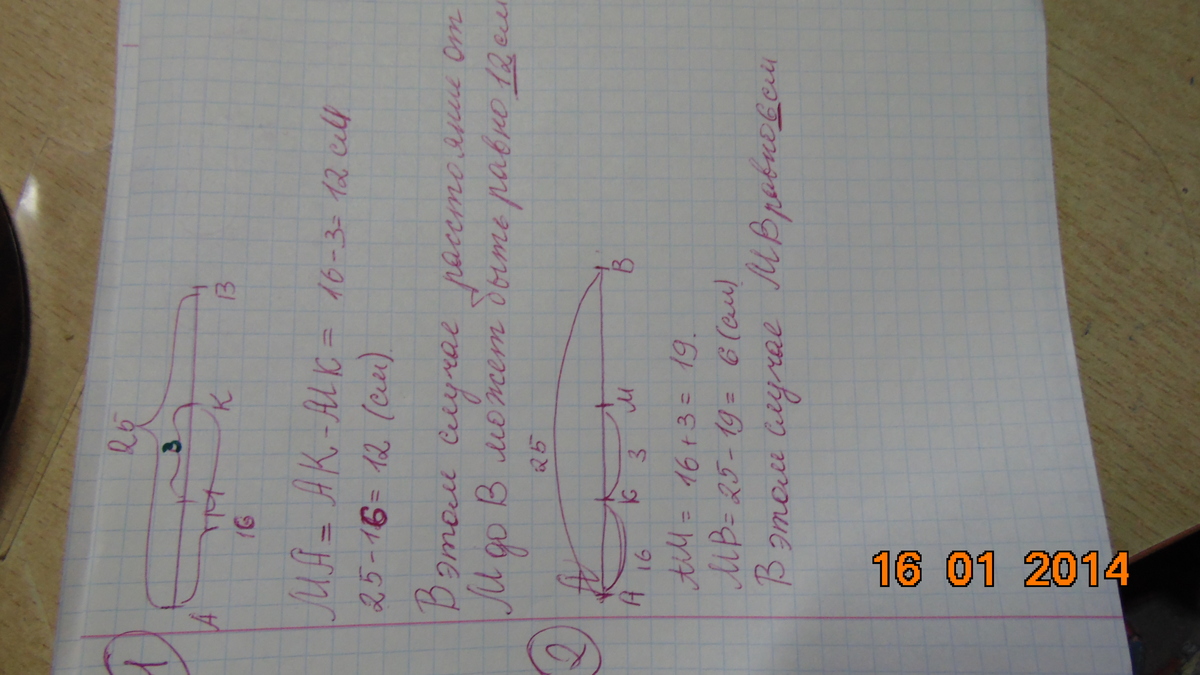 1
25
3
А М К В
16
МА = АК - МК = 16 - 3 = 12 см
25 - 16 = 12 (см)
В этом случае расстояние от
М до В может быть равно 12 см
2
25
А К М В
16 3
АМ = 16 + 3 = 19.
МВ = 25 - 19 = 6 (см)
В этом случае МВ равно 6 см
16 01 2014